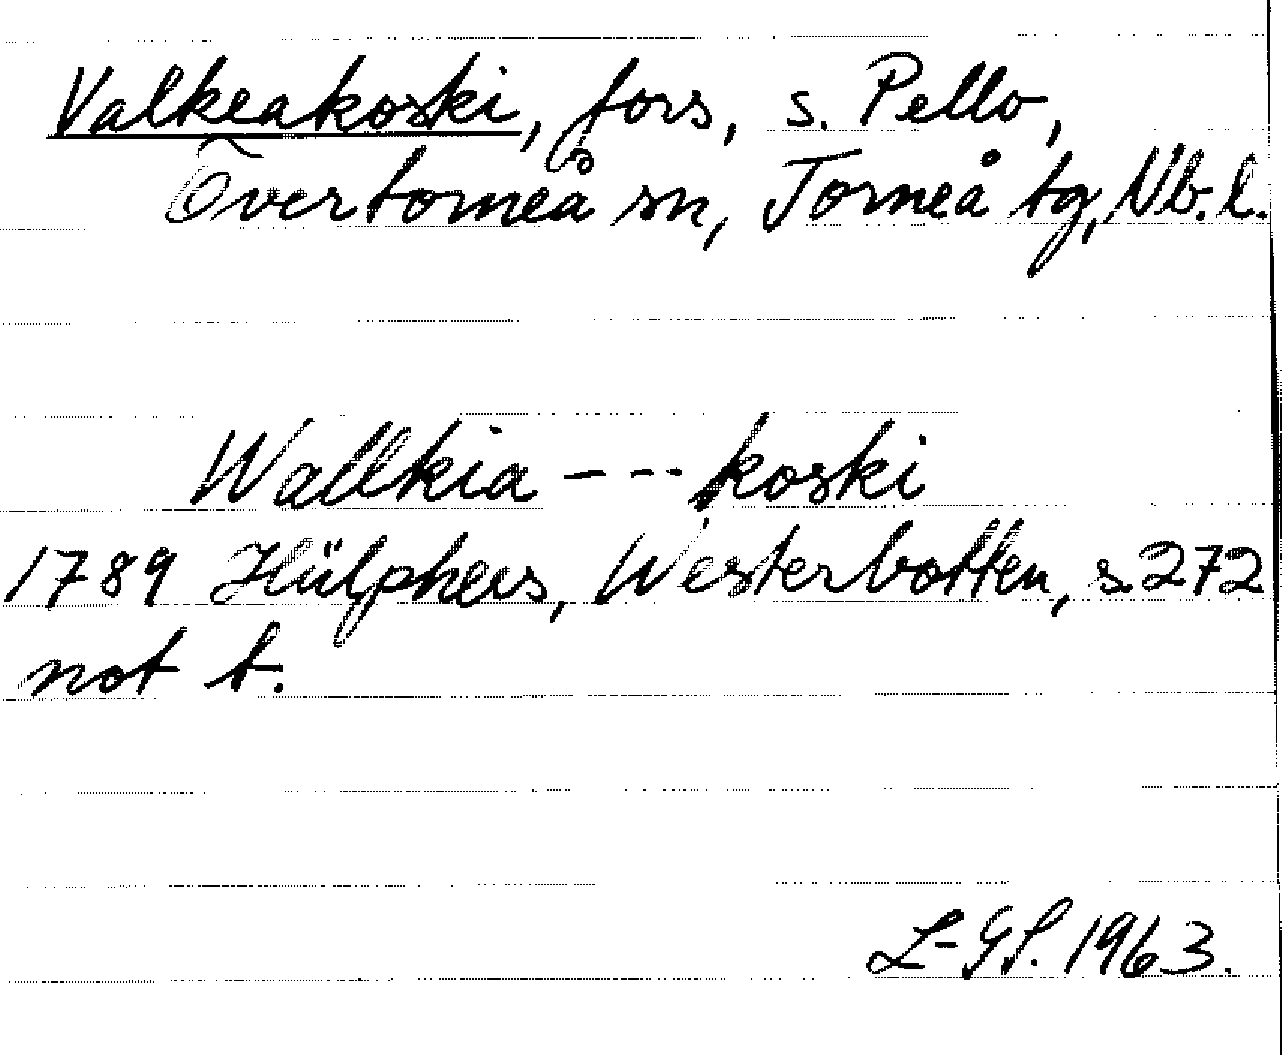 Valkeakoski, fors, s. Pello,
Övertorneå sn, Torneå tg, Nb. l.
Wallkia --- koski
1789 Hülphers, Westerbotten, s. 272
not t.
L-GS. 1963.